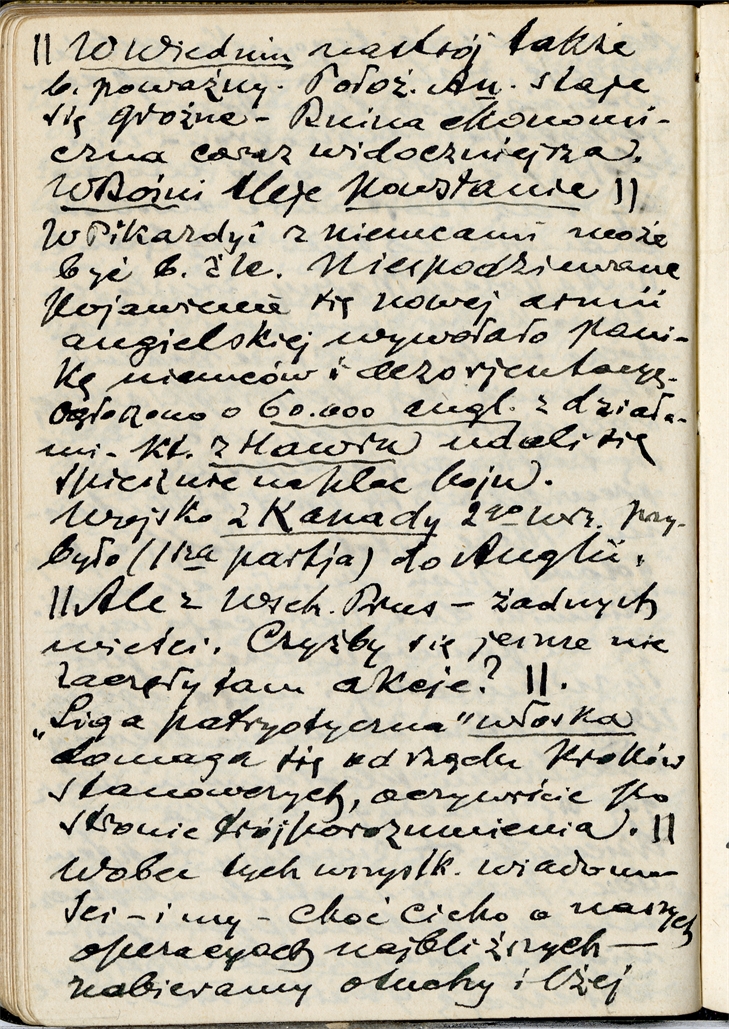 || W Wiedniu nastrój także
b. poważny. Położ. Au. staje
się groźne – Ruina ekonomi-
czna coraz widoczniejsza.
W Bośni tleje powstanie ||
W Pikardyi z niemcami może
być b. źle. Niespodziewane
pojawienie się nowej armii
angielskiej wywołało pani-
kę niemców i dezorjentacyę.
Ogłoszono o 60.000 angl. z działa-
mi. kt. z Hawru udali się
spiesznie na plac boju.
Wojsko z Kanady 2go wrz. przy-
było (1sza partja) do Anglii.
|| Ale z Wsch. Prus – żadnych
wieści. Czyżby się jeszcze nie
zaczęły tam akcje? ||.
„Liga patryotyczna" włoska
domaga się od rządu kroków
stanowczych, oczywiście po
stronie trójporozumienia. ||
Wobec tych wszystk. wiadomo-
ści – i my – choć cicho o naszych
operacyach najbliższych –
nabieramy otuchy i lżej